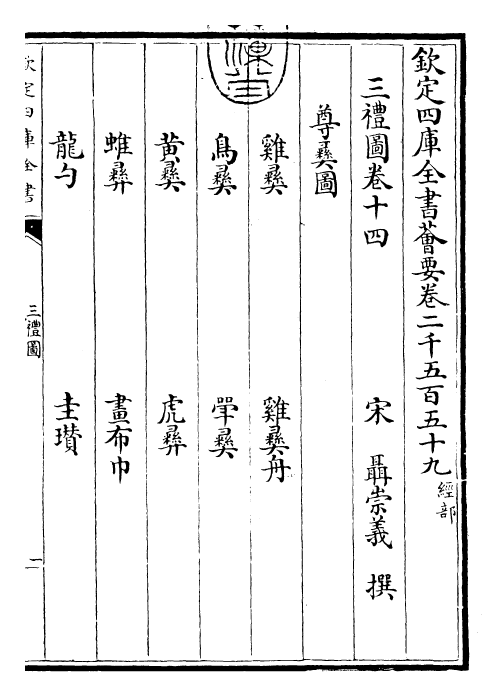 欽定四庫全書薈要卷二千五百五十九 經部
三禮圖卷十四 宋 聶崇義 撰
尊彝圖
雞彝 雞彝舟
鳥彝 斝彝
黄彝 虎彝
蜼彝 畫布巾
龍勺 圭瓚
欽定四庫全書
三禮圖
一